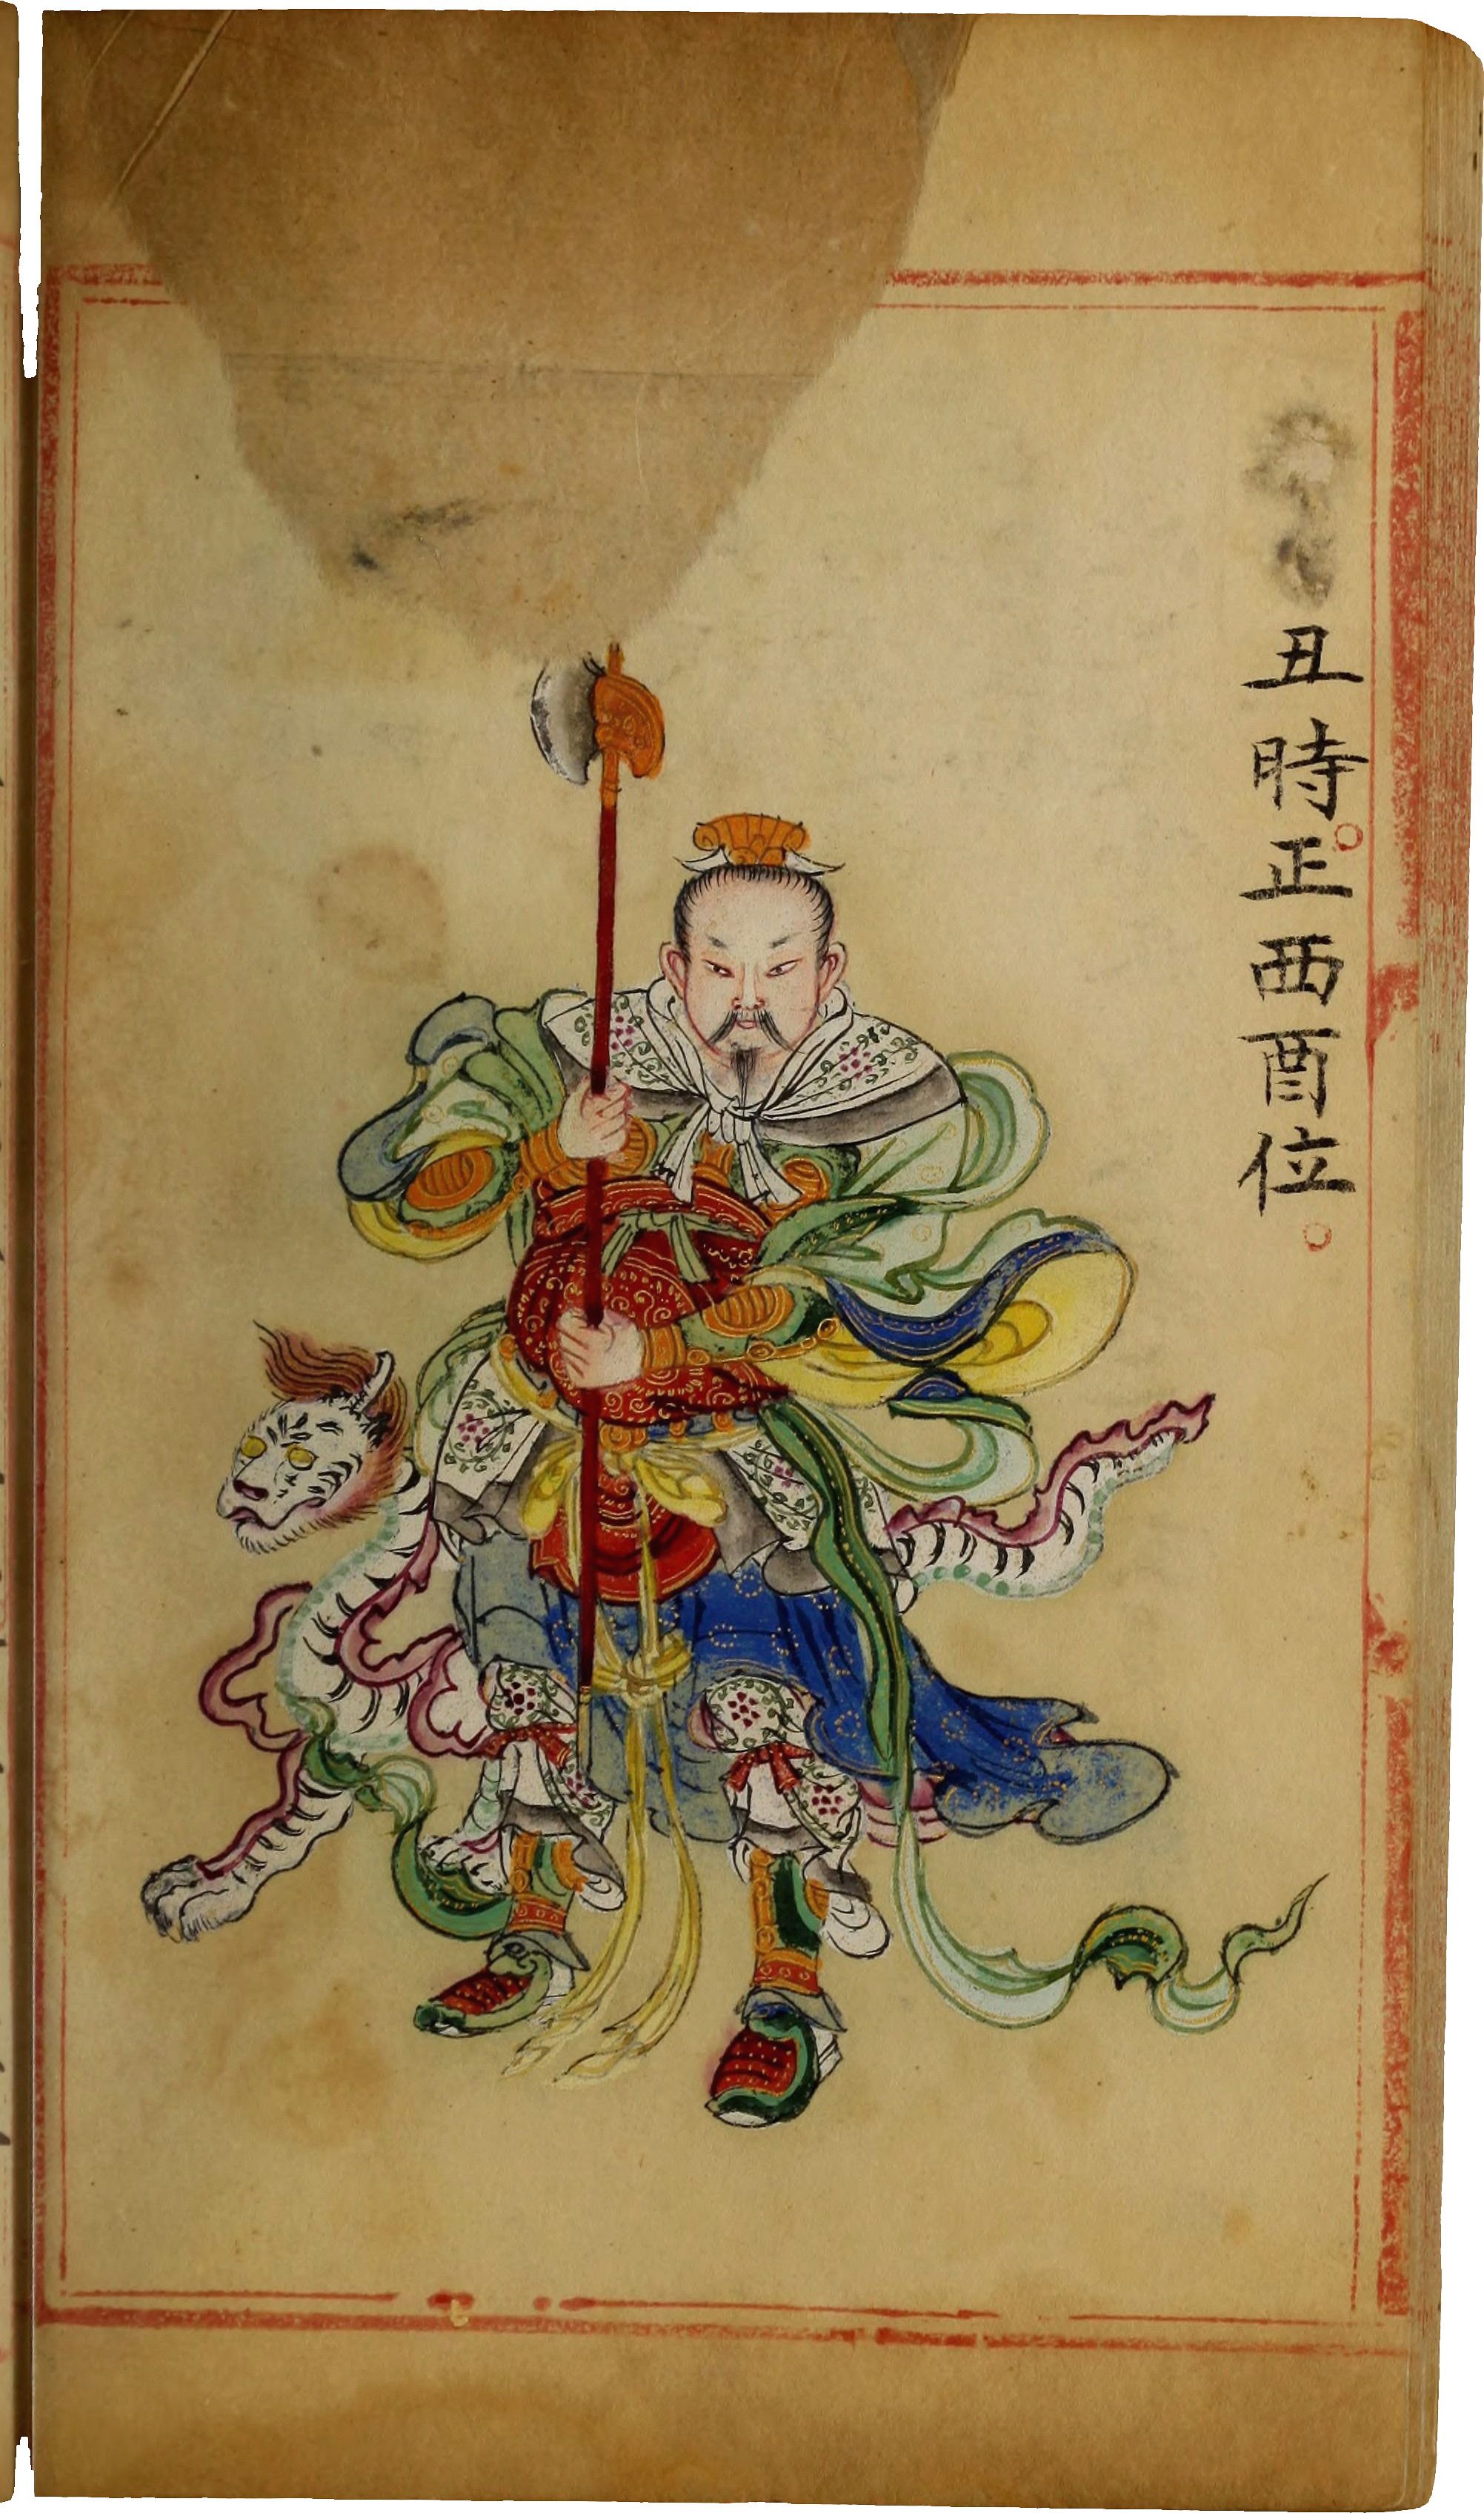 丑時正西酉位